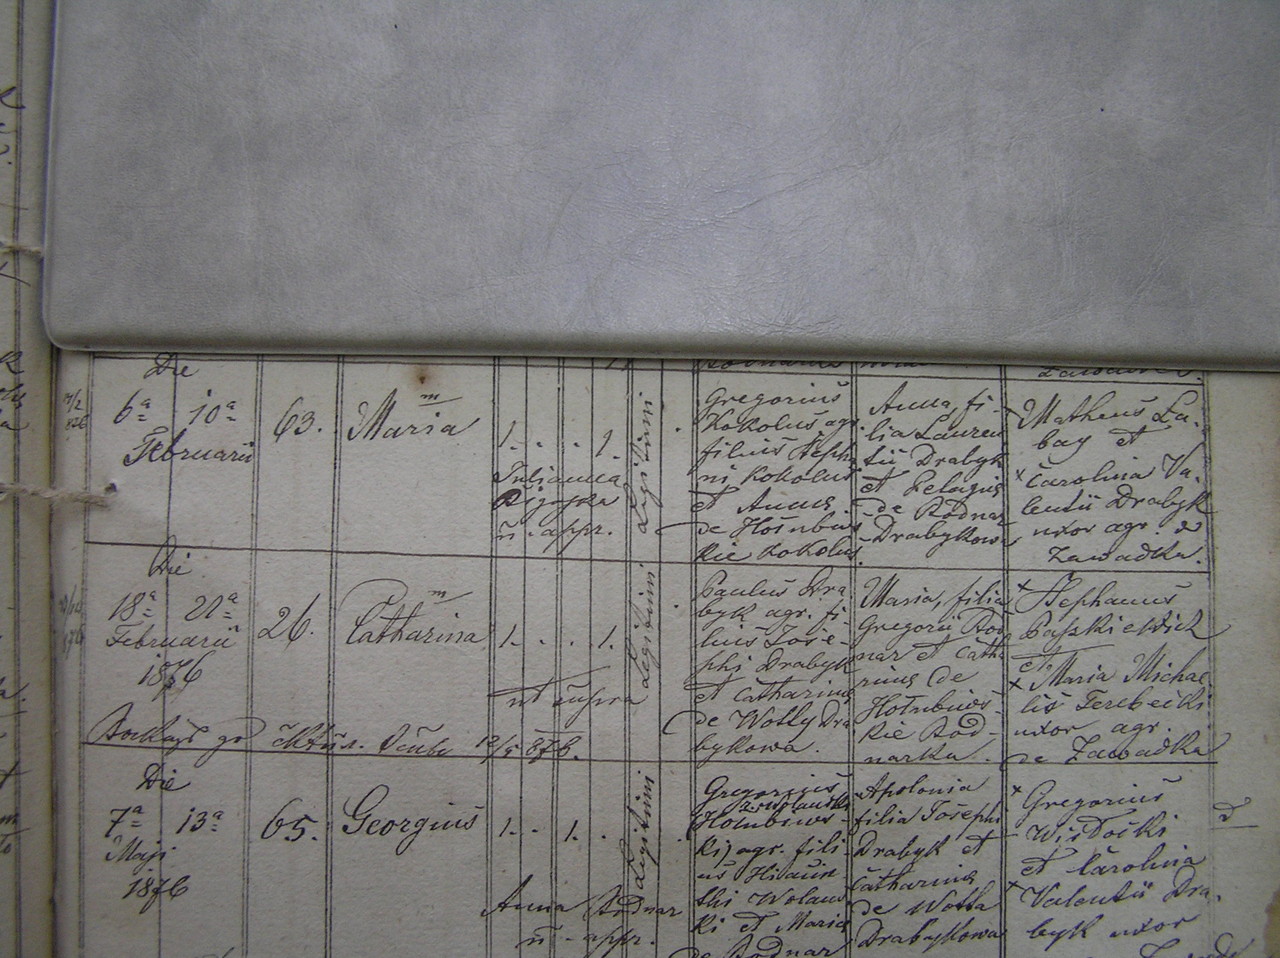 Die
6ª 10ª
Februarii
63.
Maria
1. . . 1.
Julianna
n. appr.
Legitimi
Gregorius
Kokolus agr.
filius Stepha
ni Kokolus
et Annae
de Hołubiws
kie Kokolus.
Anna fi-
lia Lauren
tii Drabyk
et Pelagiae
de Bodnar
Drabykowa
Matheus La-
bay et
Carolina Va-
lentii Drabyk
uxor agr. de
Zawadka.
Die
18ª 21ª
Februarii
1876
26.
Catharina
1. . . 1.
ut supra
Legitimi
Paulus Dra
byk agr. fi-
lius Jose-
phi Drabyk
et Catharinae
de Wolly Dra
bykowa.
Maria, filia
Gregorii Bod
nar et Catha
rinae de
Hołubiws-
kie Bod-
narka.
Stephanus
Paszkiewich
et
Maria Michae
lis Terebecki
uxor agr.
de Zawadka
12/5 876.
Die
7ª 13ª
Maji
1876
65.
Georgius
1. . 1. .
Anna Bodnar
n. appr.
Legitimi
Gregorius
Zwolanski
(Hołubiws-
ki) agr. fili-
us
thi Wolans
ki et Mariae
de Bodnar
Apolonia
filia Josephi
Drabyk et
Catharinae
de Wolla
Drabykowa
Gregorius
Wisłocki
et Carolina
Valentii Dra-
byk uxor